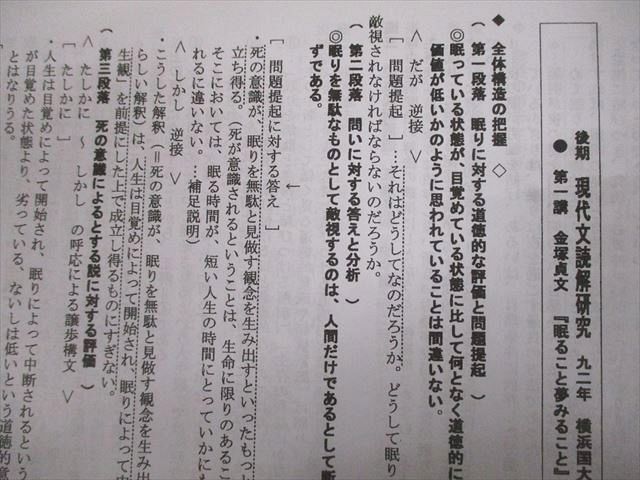 後期 現代文読解研究 九二年 横浜国大
● 第一講 金塚貞文 『眠ること夢みること』
◆ 全体構造の把握 ◇
( 第一段落 眠りに対する道徳的な評価と問題提起 )
◎眠っている状態が、目覚めている状態に比して何となく道徳的に
価値が低いかのように思われていることは間違いない。
〈 だが 逆接 〉
[ 問題提起 ]…それはどうしてなのだろうか。どうして眠り
敵視されなければならないのだろうか。
( 第二段落 問いに対する答えと分析 )
◎眠りを無駄なものとして敵視するのは、人間だけであるとして断
ずである。
←
[ 問題提起に対する答え ]
・死の意識が、眠りを無駄と見做す観念を生み出すといったもっと
立ち得る。（死が意識されるということは、生命に限りのあるこ
そこにおいては、眠る時間が、短い人生の時間にとっていかにも
れるに違いない。…補足説明）
〈 しかし 逆接 〉
・こうした解釈（＝死の意識が、眠りを無駄と見做す観念を生み出
らしい解釈）は、人生は目覚めによって開始され、眠りによって中
生観」を前提にした上で成立し得るものにすぎない。
( 第三段落 死の意識によるとする説に対する評価 )
〈 たしかに ～ しかし の呼応による譲歩構文 〉
[ たしかに ]
・人生は目覚めによって開始され、眠りによって中断されるという
が目覚めた状態より、劣っている、ないしは低いという道徳的意
とはなりうる。